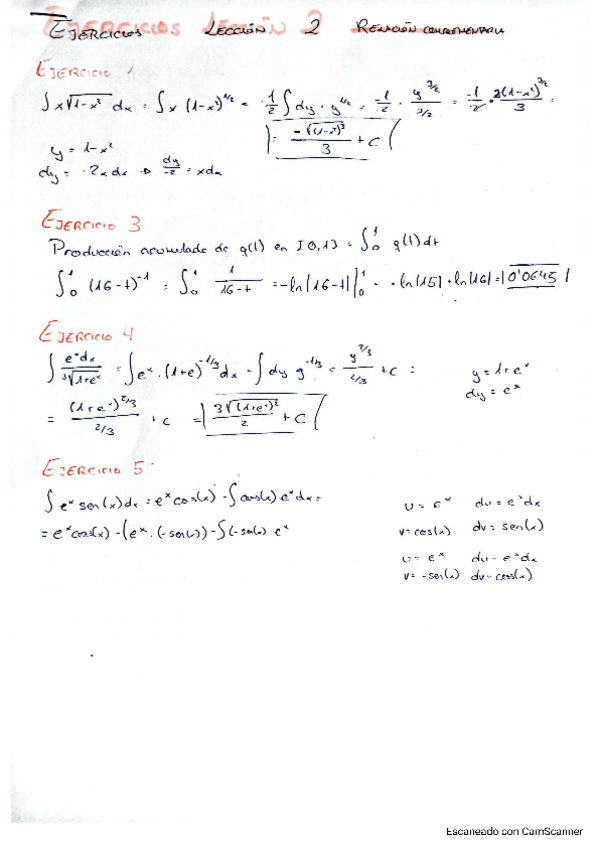 EJERCICIOS LECCIÓN 2 RELACIÓN COMPLEMENTARIA
EJERCICIO 1
∫ x√(1-x²) dx = ∫ x (1-x²)^(1/2) = -1/2 ∫ dy · y^(1/2) = -1/2 · y^(3/2)/(3/2) = -1/2 · 2(1-x²)^(3/2)/3 =
= -√(1-x²)³/3 + C
y = 1-x²
dy = -2x dx → dy/-2 = x dx
EJERCICIO 3
Producción acumulada de q(t) en [0,1] = ∫₀¹ q(t) dt
∫₀¹ (16-t)⁻¹ = ∫₀¹ 1/(16-t) = -ln|16-t| |₀¹ = -ln|15| + ln|16| = 0'0645
EJERCICIO 4
∫ eˣdx/³√(1+eˣ) = ∫ eˣ · (1+e)^(-1/3) dx = ∫ dy y^(-1/3) = y^(2/3)/(2/3) + C =
y = 1+eˣ
dy = eˣ
= (1+eˣ)^(2/3)/(2/3) + C = 3∛(1+eˣ)²/2 + C
EJERCICIO 5
∫ eˣ sen(x) dx = eˣ cos(x) - ∫ cos(x) eˣ dx =
u = eˣ du = eˣdx
= eˣ cos(x) - (eˣ · (-sen(x)) - ∫(-sen(x) eˣ
v = cos(x) dv = sen(x)
u = eˣ du = eˣdx
v = -sen(x) dv = cos(x)
Escaneado con CamScanner